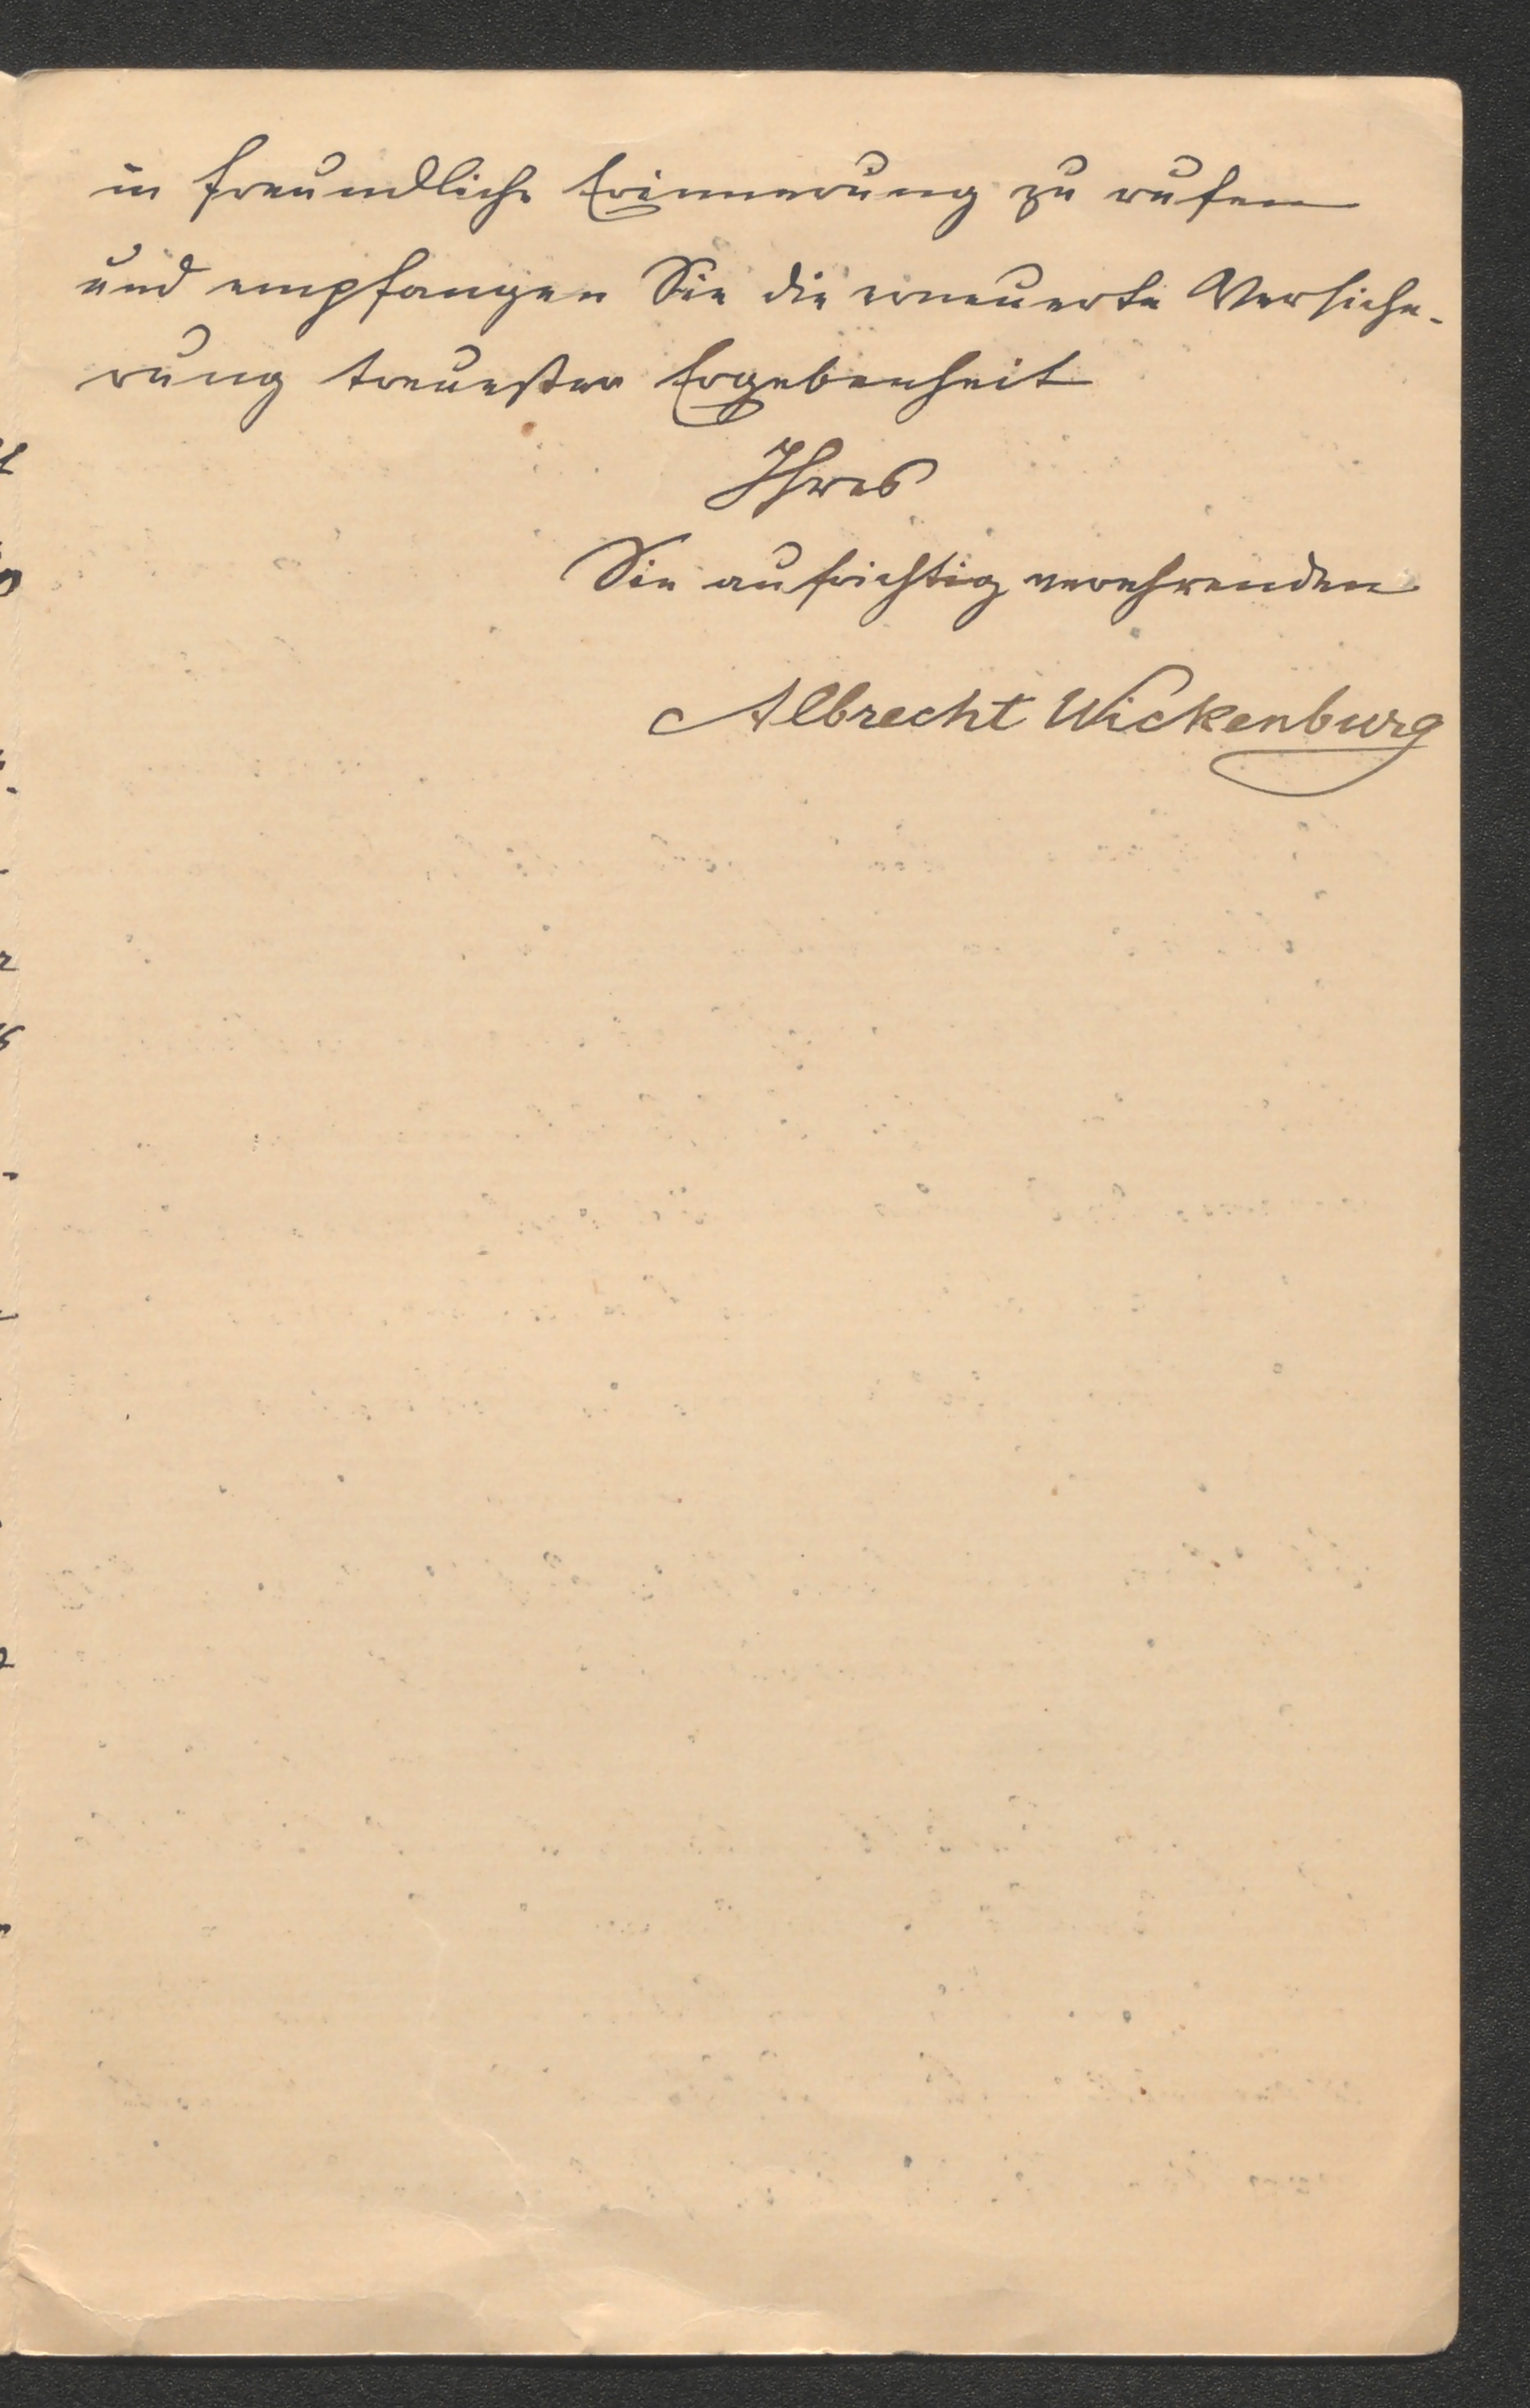 in freundliche Erinnerung zu rufen
und empfangen Sie die erneuerte Versiche-
rung treuester Ergebenheit
Ihres
Sie aufrichtig verehrenden
Albrecht Wickenburg